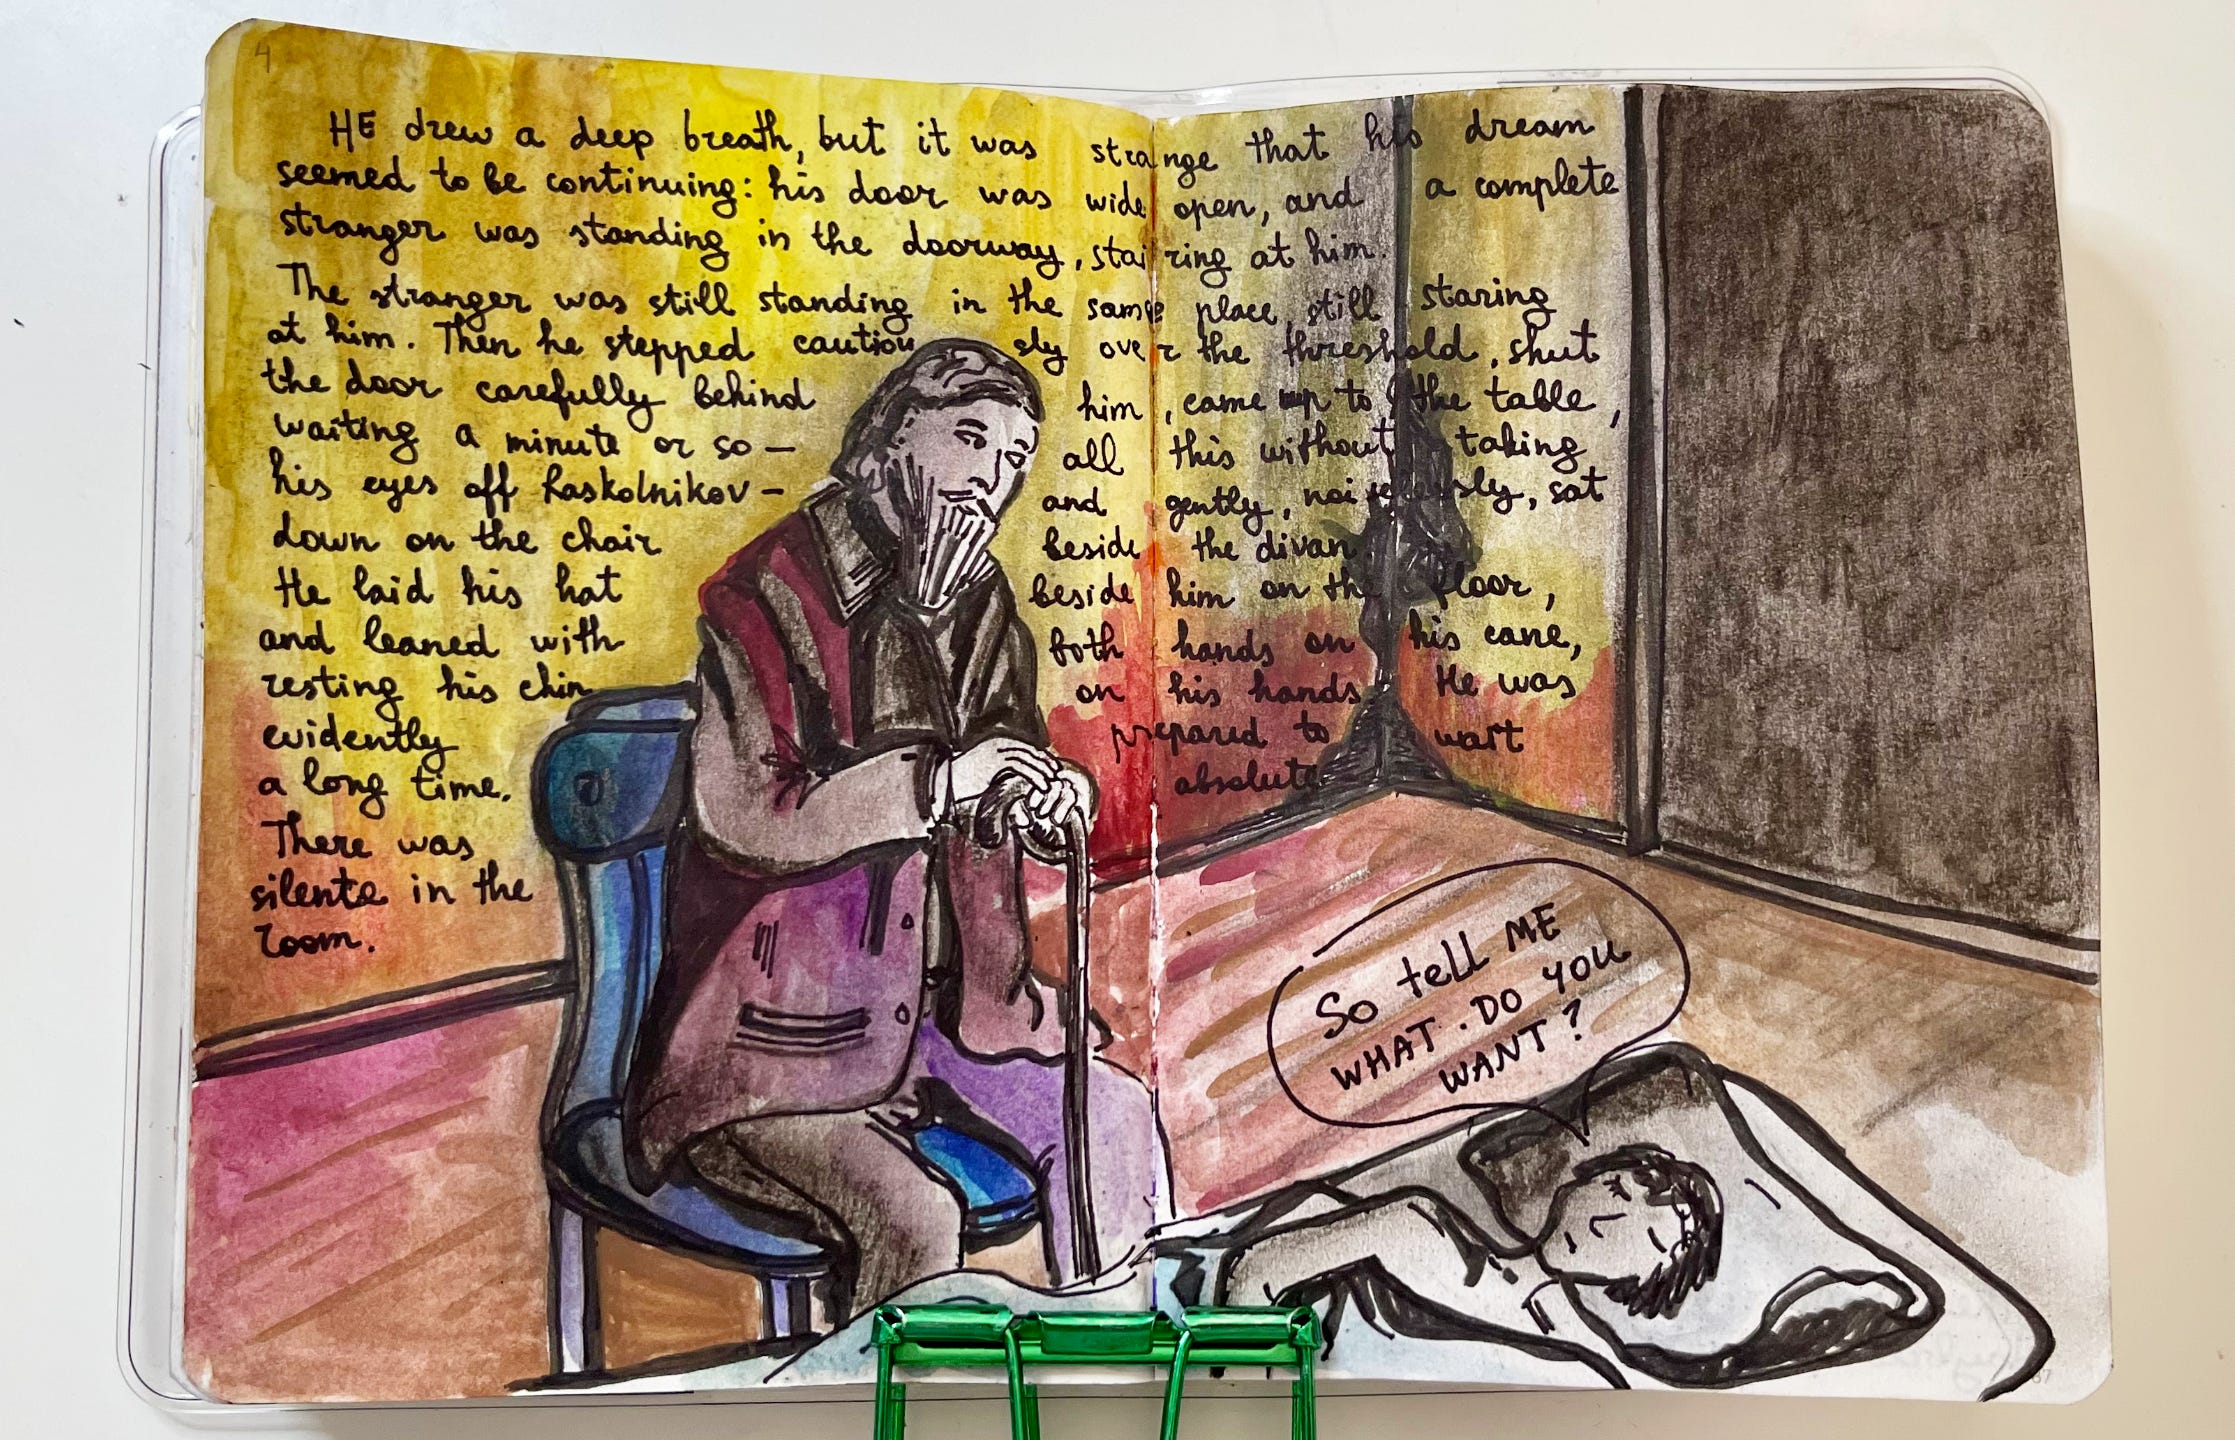 4
HE drew a deep breath, but it was strange that his dream
seemed to be continuing: his door was wide open, and a complete
stranger was standing in the doorway, stairing at him.
The stranger was still standing in the same place, still staring
at him. Then he stepped cautiously over the threshold, shut
the door carefully behind him, came up to the table,
waiting a minute or so — all this without taking
his eyes off Raskolnikov — and gently, noiselessly, sat
down on the chair beside the divan.
He laid his hat beside him on the floor,
and leaned with both hands on his cane,
resting his chin on his hands. He was
evidently prepared to wait
a long time. absolute
There was
silente in the
room.
So tell ME
WHAT DO YOU
WANT?